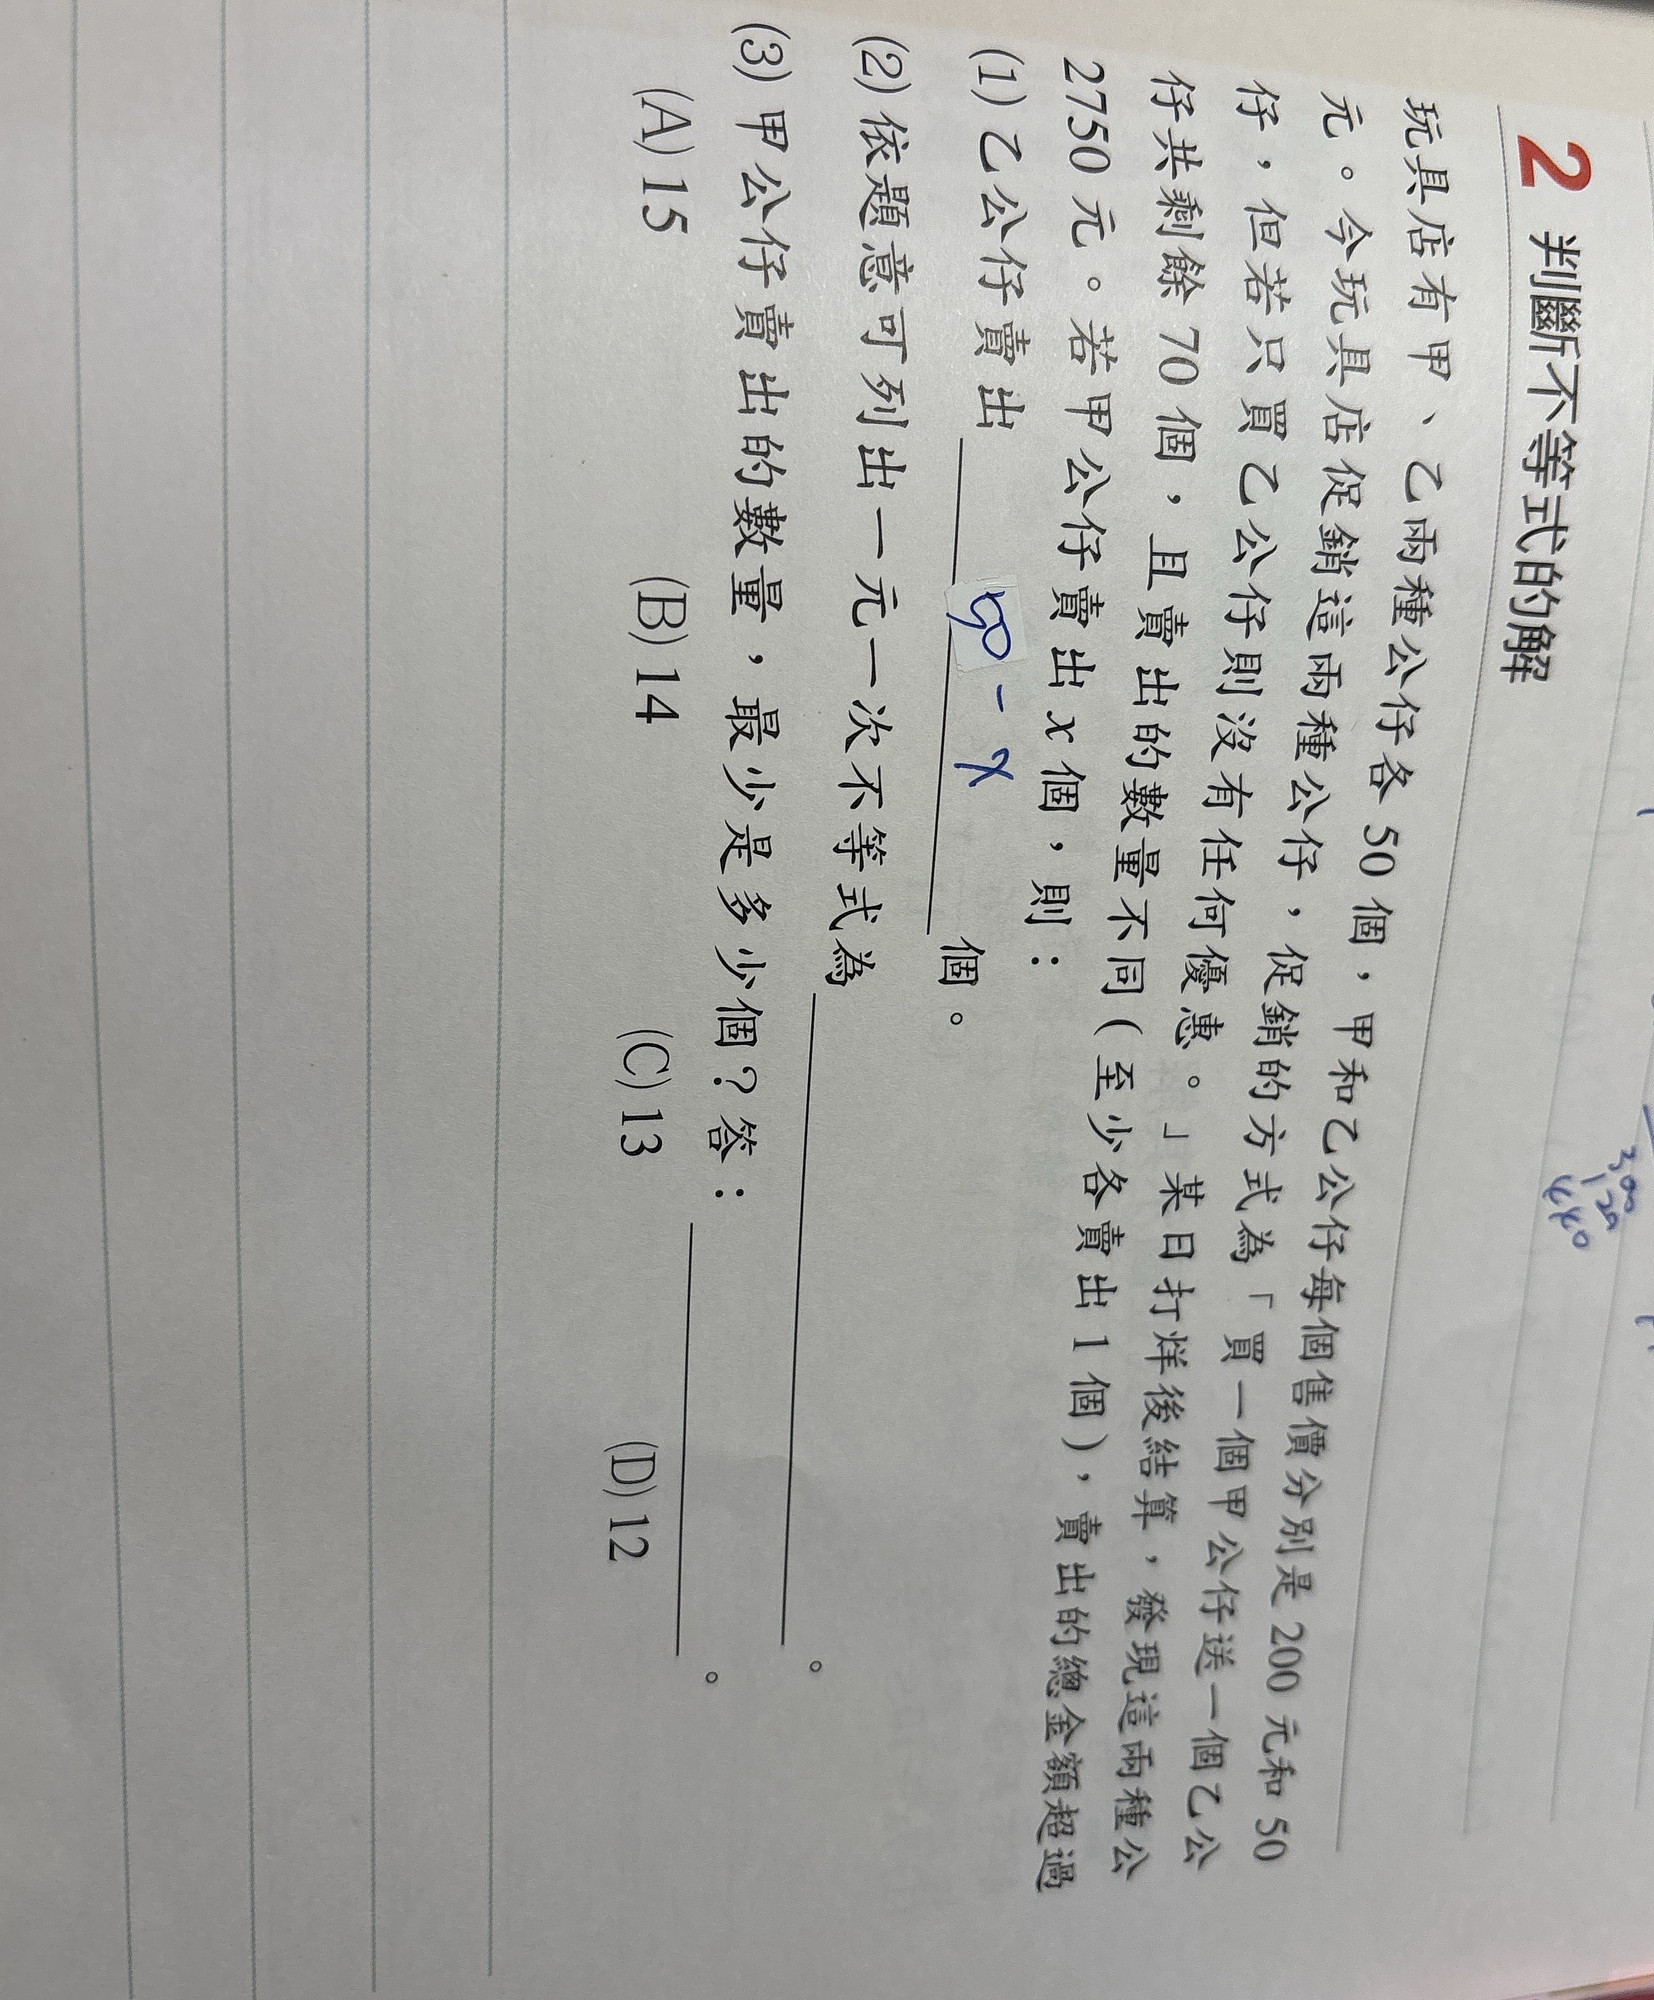 300
120
440
2 判斷不等式的解
玩具店有甲、乙兩種公仔各 50 個，甲和乙公仔每個售價分別是 200 元和 50
元。今玩具店促銷這兩種公仔，促銷的方式為「買一個甲公仔送一個乙公
仔，但若只買乙公仔則沒有任何優惠。」某日打烊後結算，發現這兩種公
仔共剩餘 70 個，且賣出的數量不同(至少各賣出 1 個)，賣出的總金額超過
2750 元。若甲公仔賣出 x 個，則：
(1) 乙公仔賣出 50 - x 個。
(2) 依題意可列出一元一次不等式為 。
(3) 甲公仔賣出的數量，最少是多少個？答： 。
(A) 15 (B) 14 (C) 13 (D) 12